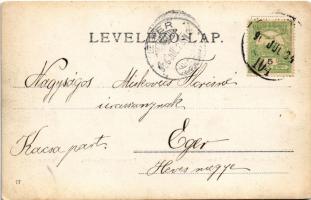 LEVELEZŐ-LAP.
EGER
JUL 24
5
Nagyságos Miskovics Florisné
úrasszonynak
Kacsa part.
Eger
Heves megye
17